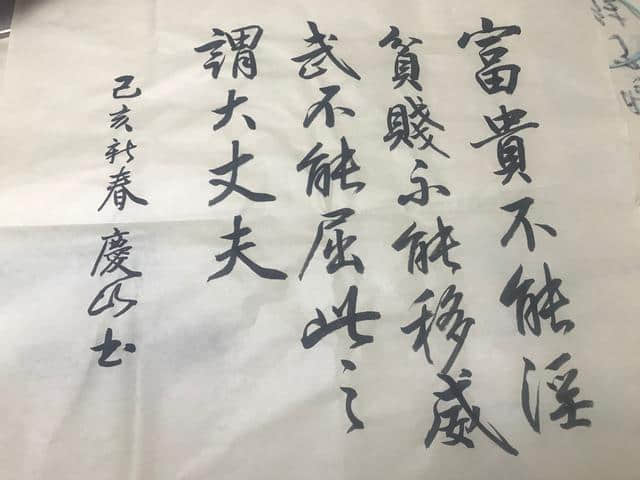 富貴不能淫
貧賤不能移威
武不能屈此之
謂大丈夫
己亥新春 慶山书